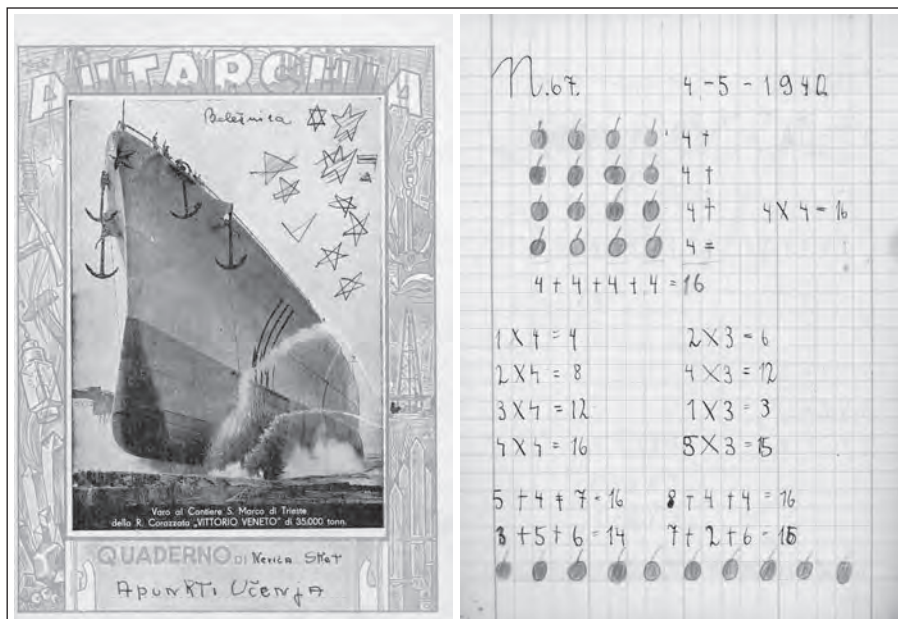 AUTARCHIA
Beležnica
Varo al Cantiere S. Marco di Trieste
della R. Corazzata „VITTORIO VENETO" di 35.000 tonn.
QUADERNO DI Nerica Skot
APUNKTI UČENJA
N. 67. 4 - 5 - 1942
4 +
4 +
4 + 4 X 4 = 16
4 =
4 + 4 + 4 + 4 = 16
1 X 4 = 4 2 X 3 = 6
2 X 4 = 8 4 X 3 = 12
3 X 4 = 12 1 X 3 = 3
4 X 4 = 16 5 X 3 = 15
5 + 4 + 7 = 16 8 + 4 + 4 = 16
3 + 5 + 6 = 14 7 + 2 + 6 = 15